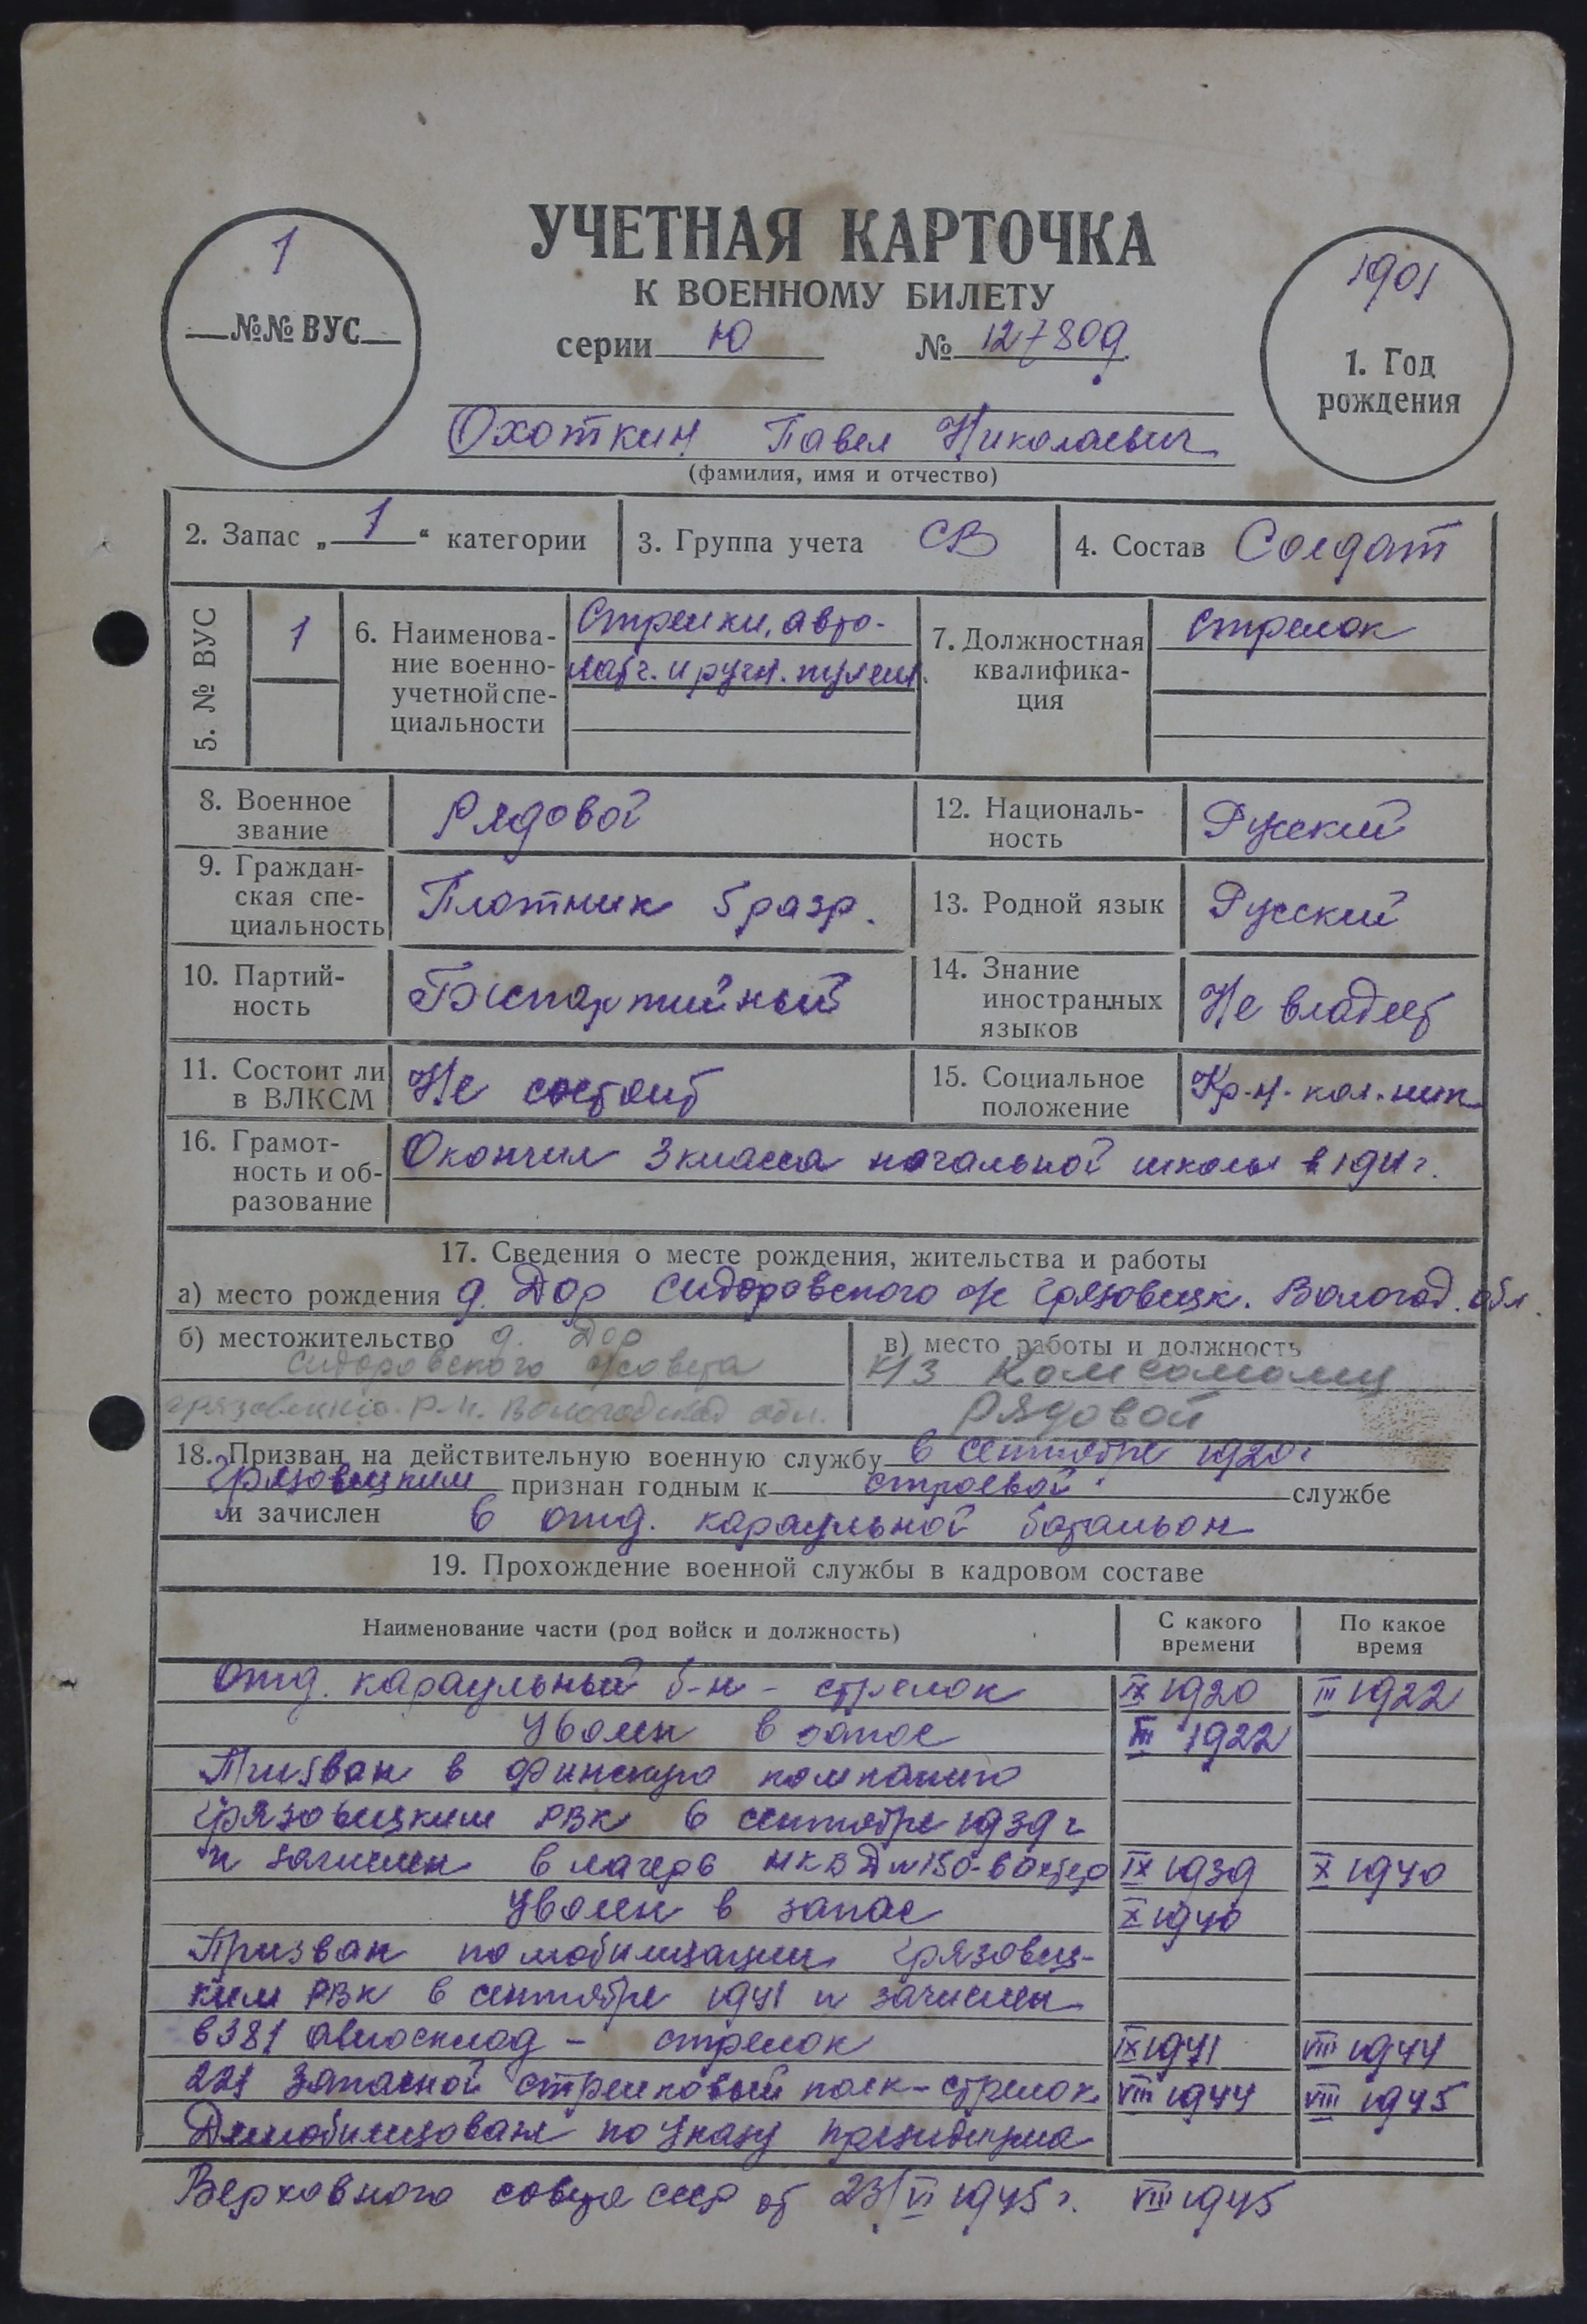 УЧЕТНАЯ КАРТОЧКА
К ВОЕННОМУ БИЛЕТУ
серии Ю № 127809
1
№№ ВУС
1901
1. Год
рождения
Охоткин Павел Николаевич
(фамилия, имя и отчество)
2. Запас „ 1 “ категории
3. Группа учета СВ
4. Состав Солдат
5. № ВУС
1
6. Наименова-
ние военно-
учетной спе-
циальности
Стрелки, авто-
матч. и ручн. пулем.
7. Должностная
квалифика-
ция
Стрелок
8. Военное
звание
Рядовой
12. Националь-
ность
Русский
9. Граждан-
ская спе-
циальность
Плотник 5 разр.
13. Родной язык
Русский
10. Партий-
ность
Беспартийный
14. Знание
иностранных
языков
Не владеет
11. Состоит ли
в ВЛКСМ
Не состоит
15. Социальное
положение
Кр-н. кол-ник
16. Грамот-
ность и об-
разование
Окончил 3 класса начальной школы в 1911 г.
17. Сведения о месте рождения, жительства и работы
а) место рождения д. Дор Сидоровского с/с Грязовецк. Вологод. обл.
б) местожительство д. Дор
Сидоровского с/совета
Грязовецкого р-н. Вологодской обл.
в) место работы и должность
к/з Комсомолец
Рядовой
18. Призван на действительную военную службу в сентябре 1920 г
Грязовецким признан годным к строевой службе
и зачислен в отд. караульной батальон
19. Прохождение военной службы в кадровом составе
Наименование части (род войск и должность)
С какого
времени
По какое
время
Отд. караульный б-н - стрелок IX 1920 III 1922
Уволен в запас III 1922
Призван в финскую компанию
Грязовецким РВК в сентябре 1939 г
и зачислен в лагерь НКВД № 150 - вахтер IX 1939 X 1940
Уволен в запас X 1940
Призван по мобилизации Грязовец-
ким РВК в сентябре 1941 и зачислен
в 381 авиосклад - стрелок IX 1941 VIII 1944
221 Запасной стрелковый полк - стрелок VIII 1944 VIII 1945
Демобилизован по Указу президиума
Верховного совета СССР от 23/VI 1945 г. VIII 1945